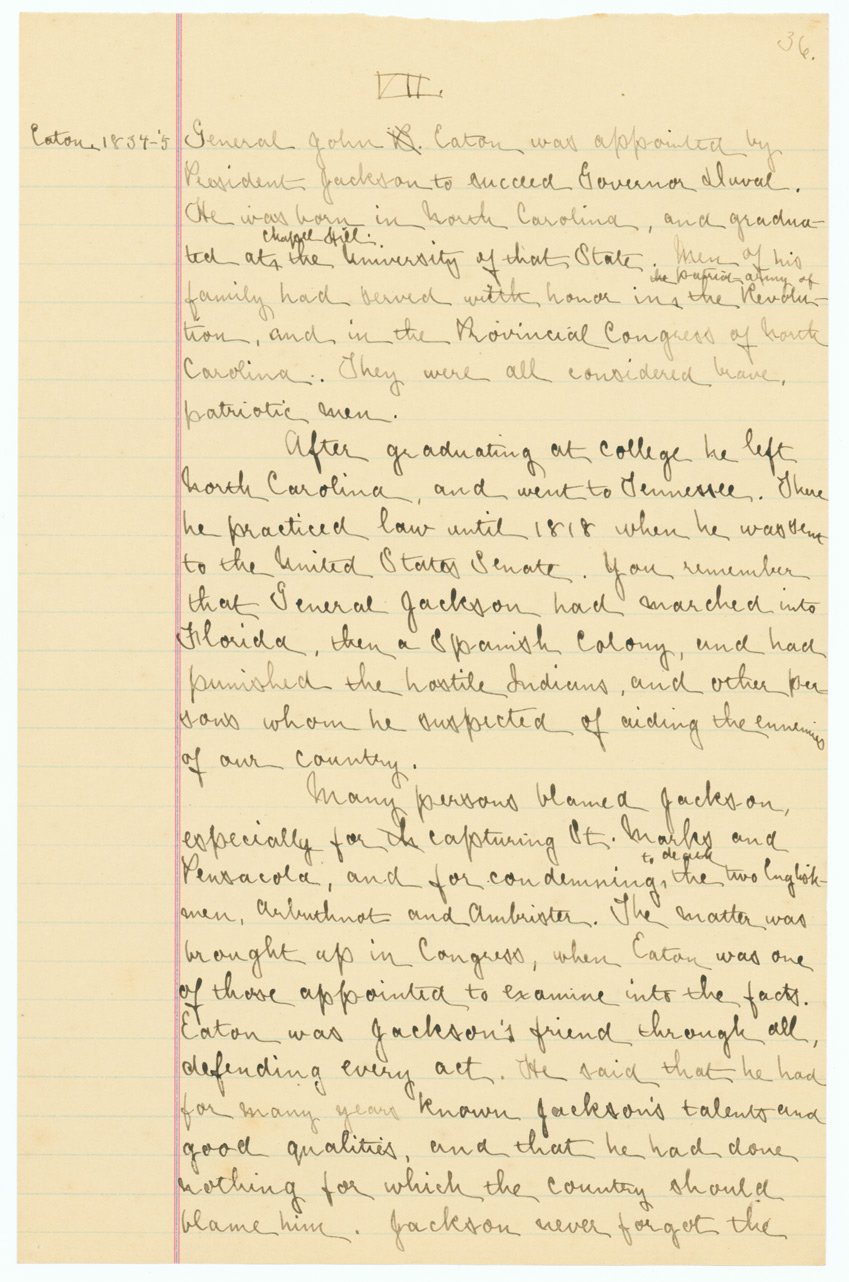 36.
VII.
Eaton, 1834-'5 General John Eaton was appointed by
President Jackson to succeed Governor Duval.
He was born in North Carolina, and gradua-
Chapel Hill.
ted at the University of that State. Men of his
the patriot army of
family had served with honor in the Revolu-
tion, and in the Provincial Congress of North
Carolina. They were all considered brave,
patriotic men.
After graduating at college he left
North Carolina, and went to Tennessee. There
he practiced law until 1818 when he was sent
to the United States Senate. You remember
that General Jackson had marched into
Florida, then a Spanish Colony, and had
punished the hostile Indians, and other per-
sons whom he suspected of aiding the ennemies
of our country.
Many persons blamed Jackson,
especially for th capturing St. Marks and
to death
Pensacola, and for condemning, the two English-
men, Arbuthnot and Ambrister. The matter was
brought up in Congress, when Eaton was one
of those appointed to examine into the facts.
Eaton was Jackson's friend through all,
defending every act. He said that he had
for many years known Jackson's talents and
good qualities, and that he had done
nothing for which the country should
blame him. Jackson never forgot the